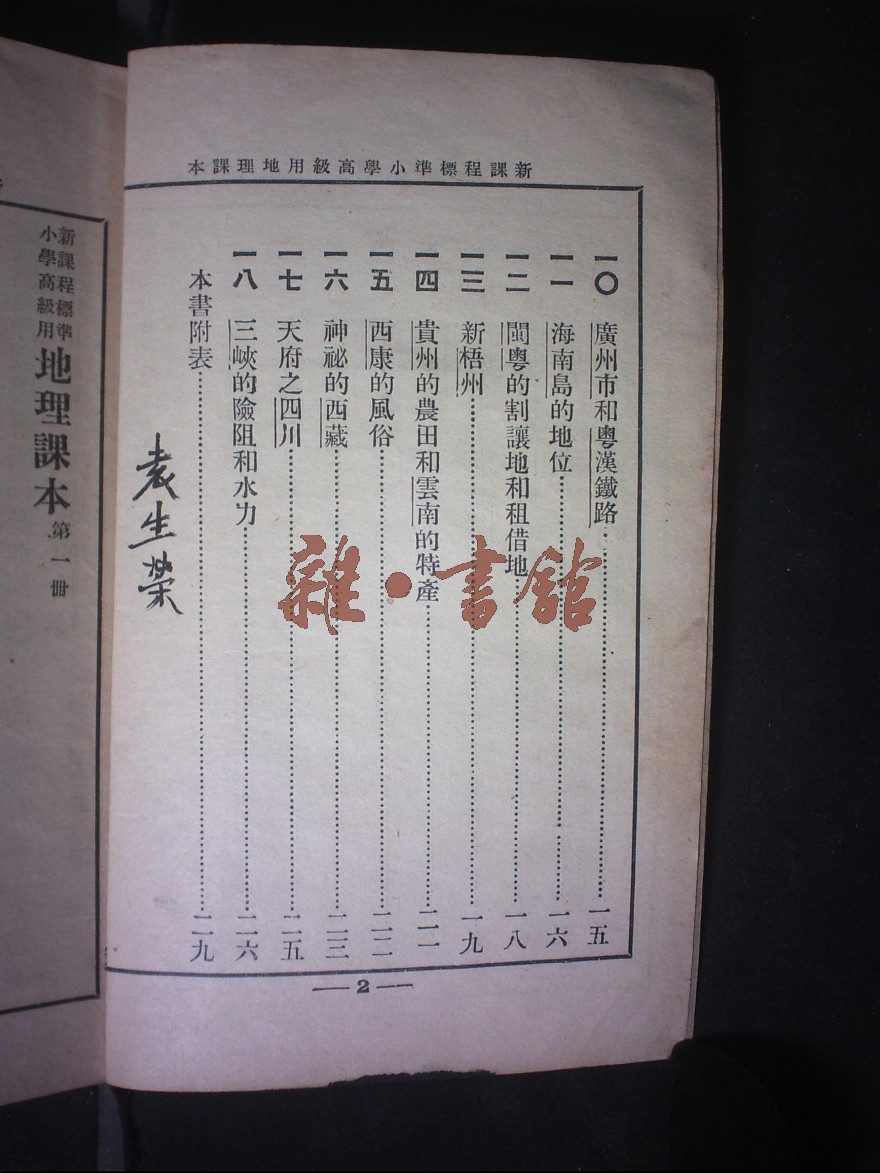 新課程標準小學高級用地理課本
一〇 廣州市和粵漢鐵路……一五
一一 海南島的地位……一六
一二 閩粵的割讓地和租借地……一八
一三 新梧州……一九
一四 貴州的農田和雲南的特產……二一
一五 西康的風俗……二二
一六 神祕的西藏……二三
一七 天府之四川……二五
一八 三峽的險阻和水力……二六
本書附表……二九
袁生榮
—2—
新課程標準
小學高級用
地理課本 第一冊
雜·書館